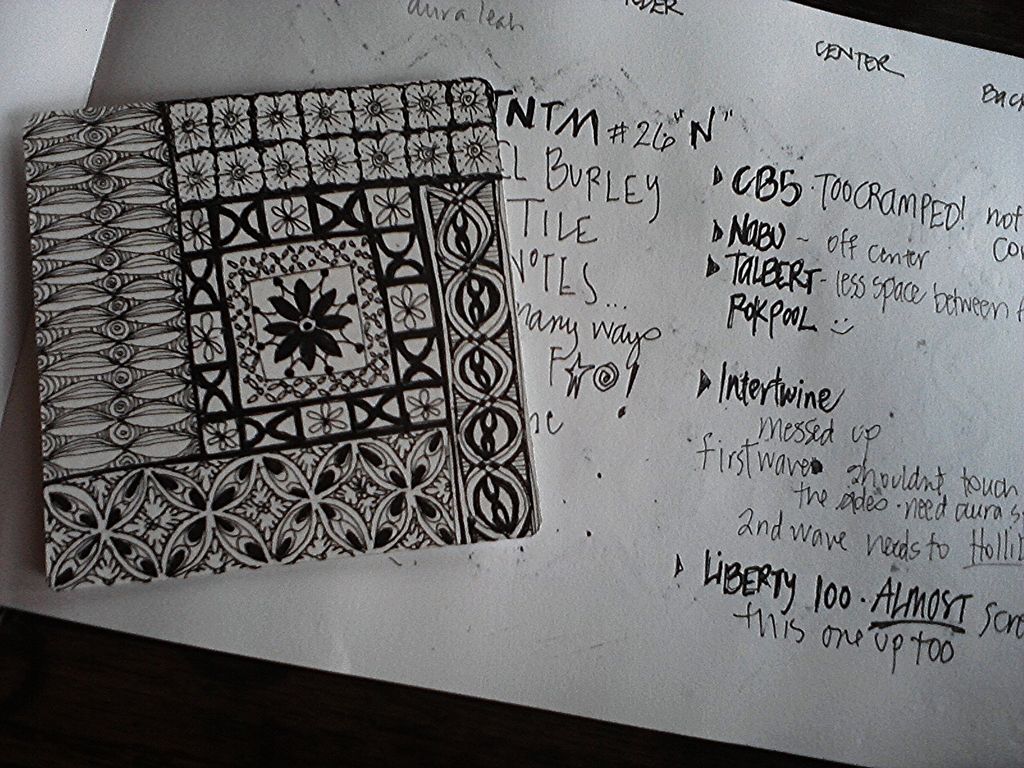 aura leah
CENTER
TNTM #26 "N"
BURLEY
TILE
NOTES...
many ways
CB5 · TOO CRAMPED! not
NABU ~ off center
TALBERT - less space between
ROKPOOL
Intertwine
messed up
first wave shouldn't touch
the sides · need aura
2nd wave needs to
LIBERTY 100 · ALMOST
this one up too